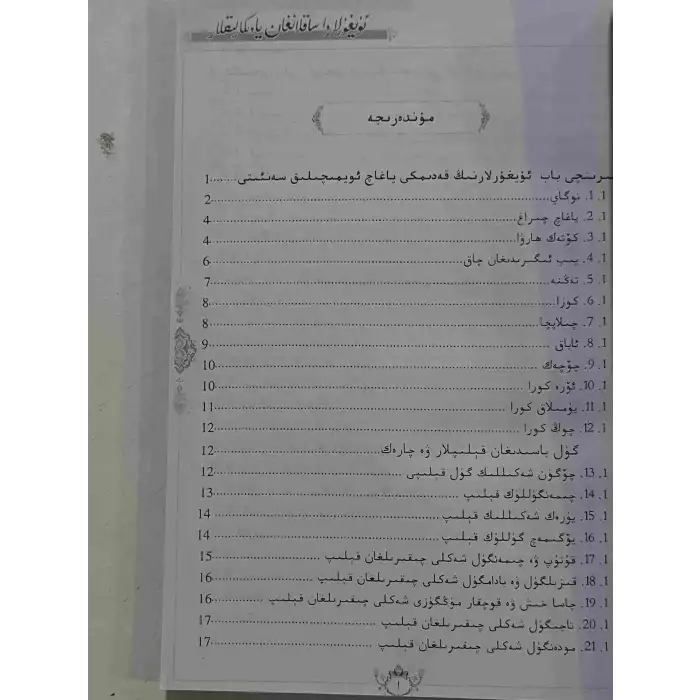 ئۇيغۇرلاردا ساقلانغان يادىكالىقلار
مۇندەرىجە
بىرىنچى باب ئۇيغۇرلارنىڭ قەدىمكى ياغاچ ئويمىچىلىق سەنئىتى.......1
1. 1. نوگاي.......2
1. 2. ياغاچ چىراغ.......4
1. 3. كۆتەك ھارۋا.......4
1. 4. يىپ ئىگىرىدىغان چاق.......6
1. 5. تەڭنە.......7
1. 6. كورا.......8
1. 7. چىلاپچا.......8
1. 8. ئاياق.......9
1. 9. چۆچەك.......10
1. 10. ئۆرە كورا.......10
1. 11. يۇمىلاق كورا.......11
1. 12. چوڭ كورا.......12
گۈل باسىدىغان قېلىپلار ۋە چارەك.......12
1. 13. چۆگۈن شەكىللىك گۈل قېلىپى.......12
1. 14. چىمەنگۈللۈك قېلىپ.......13
1. 15. يۈرەك شەكىللىك قېلىپ.......14
1. 16. يۆگىمەچ گۈللۈك قېلىپ.......14
1. 17. قۇتۇپ ۋە چىمەنگۈل شەكلى چىقىرىلغان قېلىپ.......15
1. 18. قىزىلگۈل ۋە بادامگۈل شەكلى چىقىرىلغان قېلىپ.......16
1. 19. چاسا خىش ۋە قوچقار مۈڭگۈزى شەكلى چىقىرىلغان قېلىپ.......16
1. 20. تاجىگۈل شەكلى چىقىرىلغان قېلىپ.......17
1. 21. مودەنگۈل شەكلى چىقىرىلغان قېلىپ.......17
1